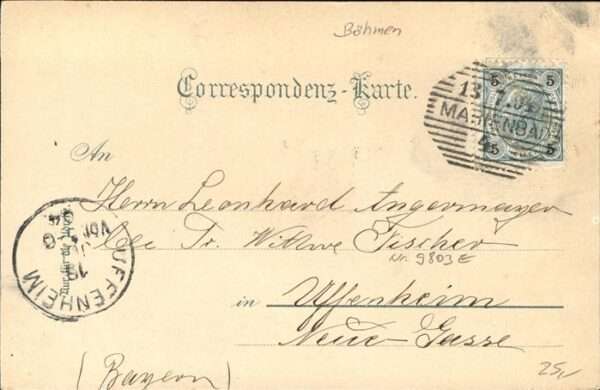 Böhmen
Correspondenz-Karte.
5 5
13 7.04
MARIENBAD
5 5
An
Herrn Leonhard Angermayer
bei Fr. Wittwe Fischer
Nr. 9803 E
in Uffenheim
Neue-Gasse
(Bayern)
UFFENHEIM
Vor
25,-